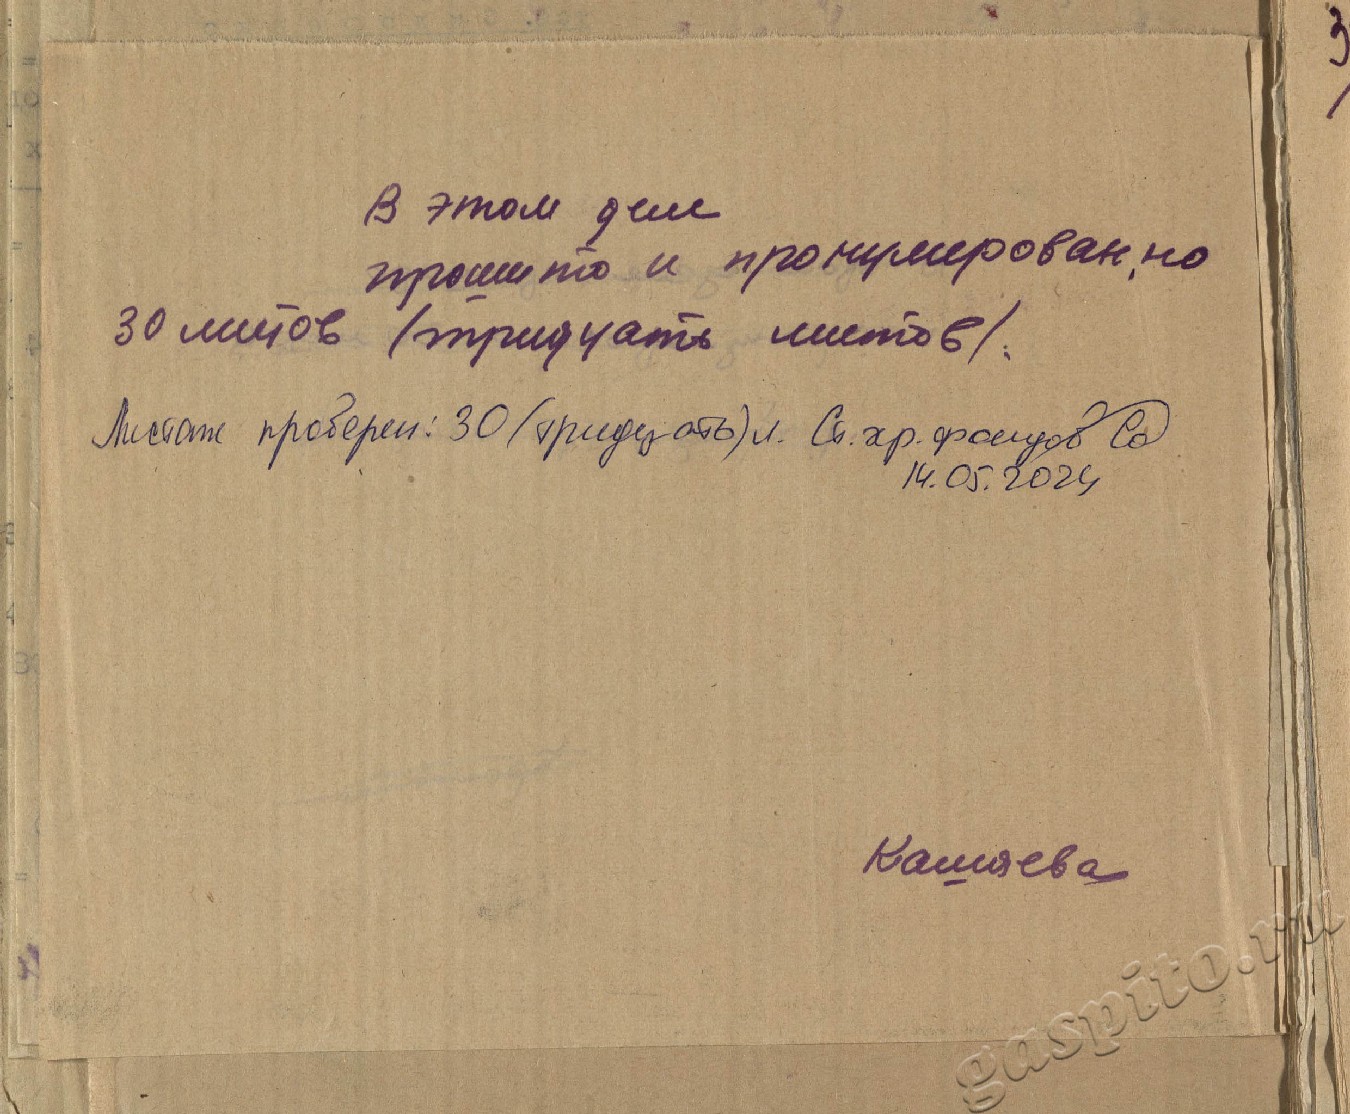 3
В этом деле
прошито и пронумерован,но
30 листов /тридцать листов/.
Листаж проверен: 30 (тридцать) л. Ст. хр. фондов
14.05.2024
Кашяева
gaspito.ru